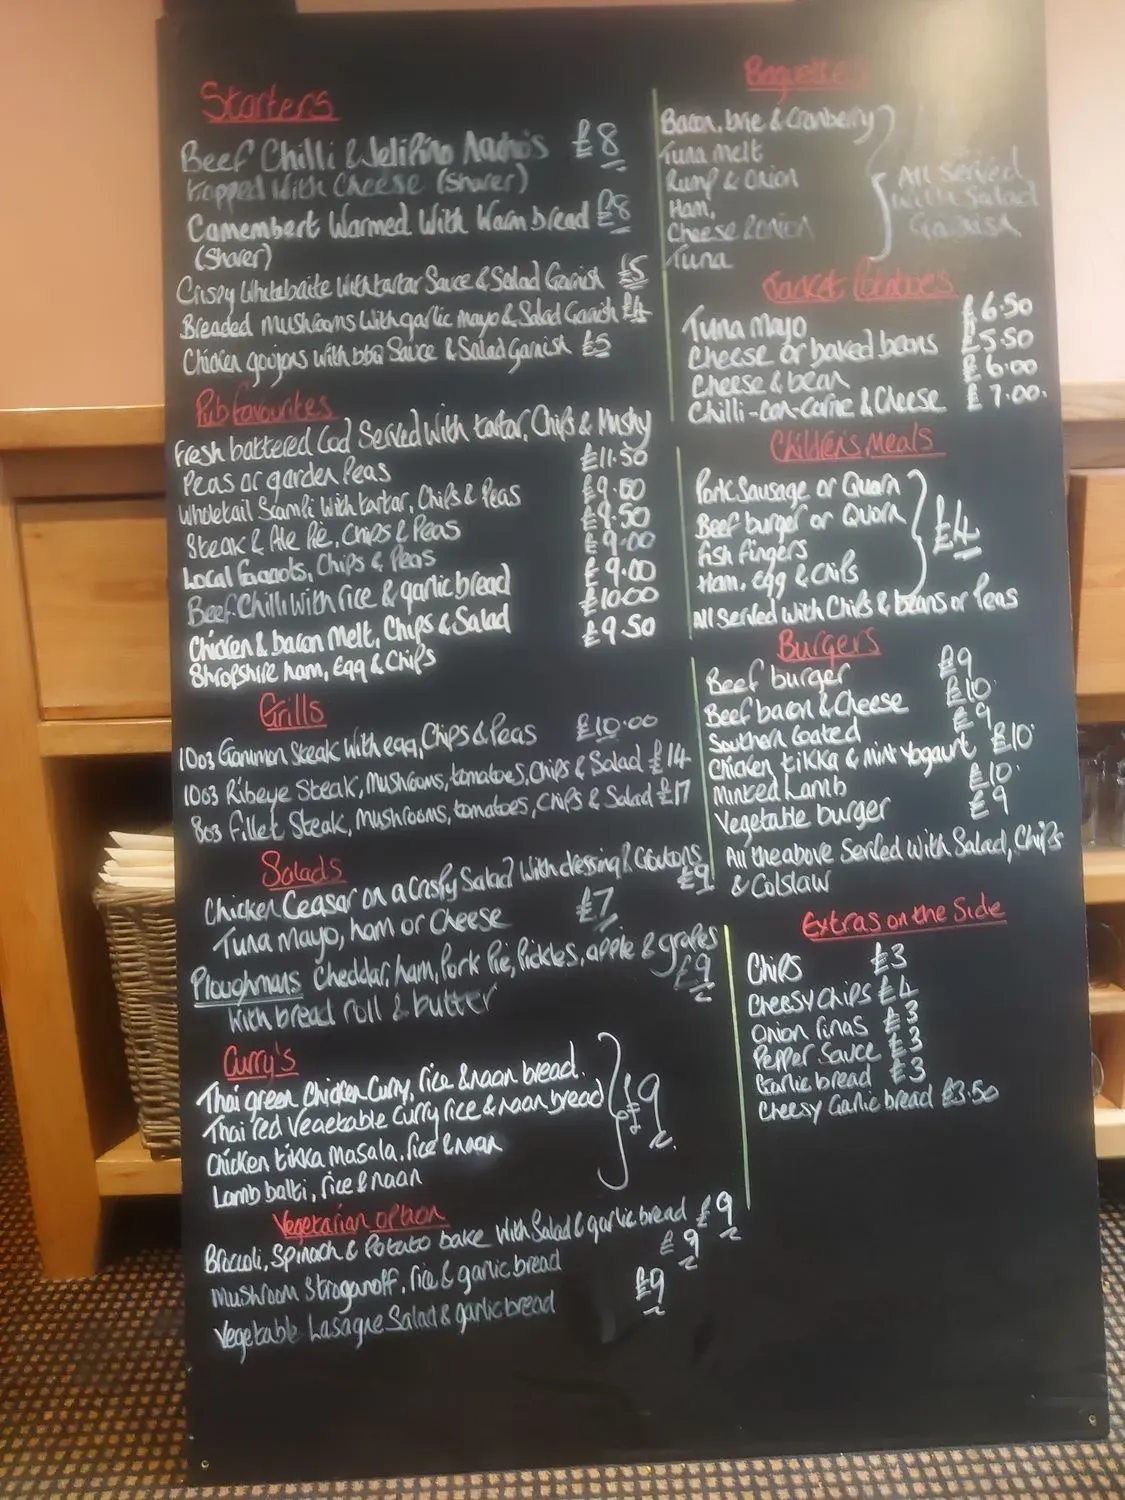 Starters
Beef Chilli & Jelipino Nacho's £8
topped With Cheese (Sharer)
Camembert Warmed With Warm bread £8
(Sharer)
Crispy Whitebaite With tartar Sauce & Salad Garnish £5
Breaded Mushrooms With garlic mayo & Salad Garnish £4
Chicken goujons with bbq Sauce & Salad Garnish £5
Pub favourites
Fresh battered Cod Served With tartar, Chips & Mushy
Peas or garden Peas £11.50
Wholetail Scampi With tartar, Chips & Peas £9.50
Steak & Ale Pie, Chips & Peas £9.50
Local faggots, Chips & Peas £9.00
Beef Chilli With rice & garlic bread £9.00
Chicken & bacon Melt, Chips & Salad £10.00
Shropshire ham, Egg & Chips £9.50
Grills
10oz Gammon Steak With egg, Chips & Peas £10.00
10oz Ribeye Steak, Mushrooms, tomatoes, Chips & Salad £14
8oz fillet Steak, Mushrooms, tomatoes, Chips & Salad £17
Salads
Chicken Ceasar on a Crispy Salad With dressing & Croutons £9
Tuna Mayo, ham or Cheese £7
Ploughmans Cheddar, ham, Pork Pie, Pickles, apple & grapes
With bread roll & butter £9
Curry's
Thai green Chicken Curry, rice & naan bread.
Thai red Vegetable Curry rice & naan bread
Chicken tikka Masala, rice & naan
Lamb balti, rice & naan
£9
Vegetarian option
Broccoli, Spinach & Potato bake With Salad & garlic bread £9
Mushroom Stroganoff, rice & garlic bread £9
Vegetable Lasagne Salad & garlic bread £9
Baguettes
Bacon, brie & Cranberry
Tuna Melt
Rump & Onion
Ham,
Cheese & Onion
Tuna
All Served
With Salad
Garnish
Jacket Potatoes
Tuna Mayo £6.50
Cheese or baked beans £5.50
Cheese & bean £6.00
Chilli-con-Carne & Cheese £7.00.
Children's Meals
Pork Sausage or Quorn
Beef burger or Quorn
Fish fingers
Ham, Egg & Chips
£4
All Served With Chips & beans or Peas
Burgers
Beef burger £9
Beef bacon & Cheese £10
Southern Coated £9
Chicken tikka & Mint Yogaurt £10
Minted Lamb £10
Vegetable burger £9
All the above Served With Salad, Chips
& Colslaw
Extras on the Side
Chips £3
Cheesy Chips £4
Onion rings £3
Pepper Sauce £3
Garlic bread £3
Cheesy Garlic bread £3.50